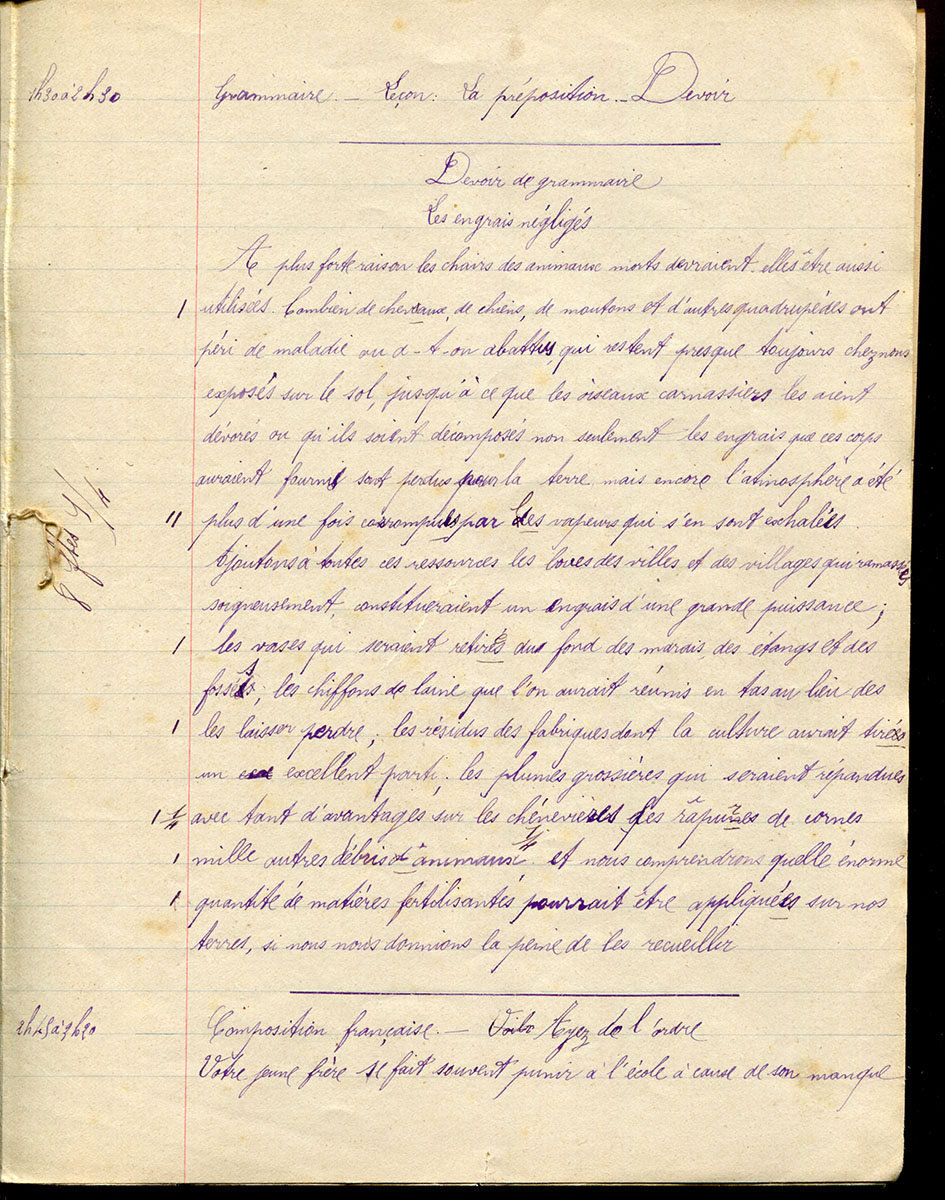 1h30 à 2h30
Grammaire. – Leçon: La préposition. – Devoir
Devoir de grammaire
Les engrais négligés
A plus forte raison les chairs des animaux morts devraient-elles être aussi
1 utilisées. Combien de chevaux, de chiens, de moutons et d'autres quadrupèdes ont
péri de maladie ou a-t-on abattus, qui restent presque toujours chez nous
exposés sur le sol, jusqu'à ce que les oiseaux carnassiers les aient
dévorés ou qu'ils soient décomposés non seulement les engrais que ces corps
auraient fournis sont perdus pour la terre mais encore l'atmosphère a été
11 plus d'une fois corrompues par les vapeurs qui s'en sont exhalées.
Ajoutons à toutes ces ressources les boues des villes et des villages qui ramassées
soigneusement, constitueraient un engrais d'une grande puissance;
1 les vases qui seraient retirés du fond des marais, des étangs et des
fossés, les chiffons de laine que l'on aurait réunis en tas au lieu des
1 les laisser perdre; les résidus des fabriques dont la culture aurait tirés
un excellent parti; les plumes grossières qui seraient répandues
1 1/4 avec tant d'avantages sur les chénevières des rapures de cornes
1 mille autres débris d'animaux 1/4 et nous comprendrons quelle énorme
1 quantité de matières fertilisantes pourrait être appliquées sur nos
terres, si nous nous donnions la peine de les recueillir
8 ftes 1/4
2h30
Composition française. – Ayez de l'ordre
Votre jeune frère se fait souvent punir à l'école à cause de son manque